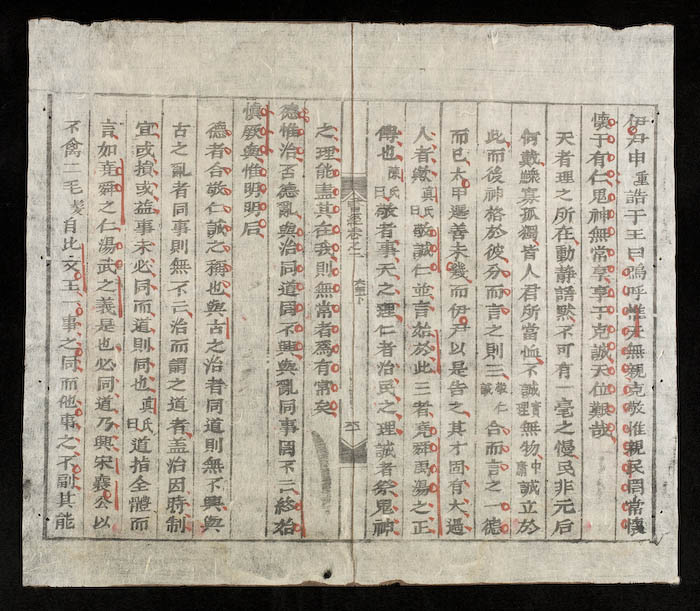 伊尹申重誥于王曰嗚呼惟天無親克敬惟親民罔常懷
懷于有仁鬼神無常享享于克誠天位艱哉
天者理之所在動靜語默不可有一毫之慢民非元后
何戴鰥寡孤獨皆人君所當恤不誠實理無物中庸誠立於
此而後神格於彼分而言之則三敬仁誠合而言之一德
而已太甲遷善未幾而伊尹以是告之其才固有大過
人者歟真氏曰敬誠仁並言始於此三者堯舜禹湯之正
傳也陳氏曰敬者事天之理仁者治民之理誠者祭鬼神
太甲下
之理能盡其在我則無常者爲有常矣
德惟治否德亂與治同道罔不興與亂同事罔不亡終始
慎厥與惟明明后
德者合敬仁誠之稱也與古之治者同道則無不興與
古之亂者同事則無不亡治而謂之道者盖治因時制
宜或損或益事未必同而道則同也真氏曰道指全體而
言如堯舜之仁湯武之義是也必同道乃興宋襄公以
不禽二毛髮自比文王一事之同而他事之不副其能